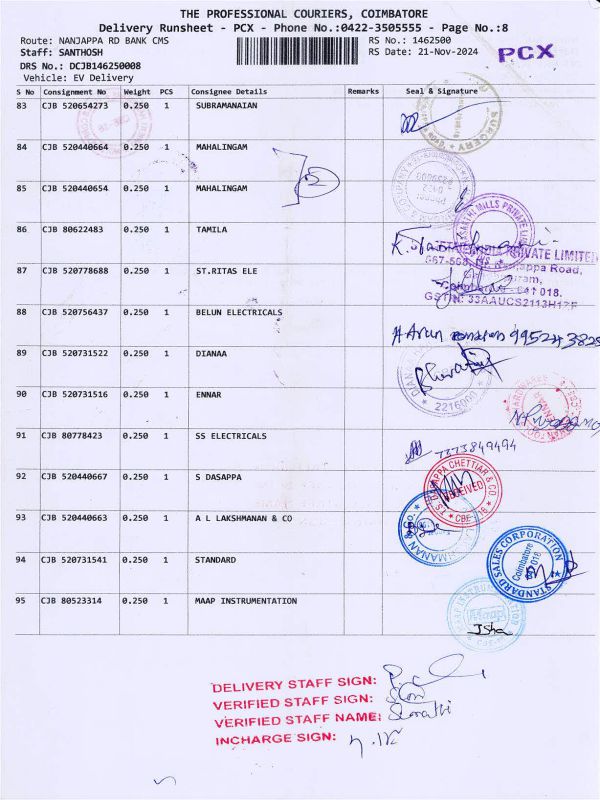 THE PROFESSIONAL COURIERS, COIMBATORE
Delivery Runsheet - PCX - Phone No.:0422-3505555 - Page No.:8
Route: NANJAPPA RD BANK CMS
RS No.: 1462500
Staff: SANTHOSH
RS Date: 21-Nov-2024
PCX
DRS No.: DCJB146250008
Vehicle: EV Delivery
S No Consignment No Weight PCS Consignee Details Remarks Seal & Signature
83 CJB 520654273 0.250 1 SUBRAMANAIAN
SURGERY
84 CJB 520440664 0.250 1 MAHALINGAM
85 CJB 520440654 0.250 1 MAHALINGAM
86 CJB 80622483 0.250 1 TAMILA
MILLS PRIVATE
PRIVATE LIMITED
87 CJB 520778688 0.250 1 ST.RITAS ELE
Road,
641 018.
GSTIN: 33AAUCS2113H1ZF
88 CJB 520756437 0.250 1 BELUN ELECTRICALS
89 CJB 520731522 0.250 1 DIANAA
2216000
90 CJB 520731516 0.250 1 ENNAR
91 CJB 80778423 0.250 1 SS ELECTRICALS
7373849494
92 CJB 520440667 0.250 1 S DASAPPA
T.S. DASAPPA CHETTIAR & CO.
RECEIVED
CBE-16
93 CJB 520440663 0.250 1 A L LAKSHMANAN & CO
94 CJB 520731541 0.250 1 STANDARD
STANDARD SALES CORPORATION
Coimbatore
641 018
95 CJB 80523314 0.250 1 MAAP INSTRUMENTATION
Isha
DELIVERY STAFF SIGN:
VERIFIED STAFF SIGN:
VERIFIED STAFF NAME:
INCHARGE SIGN: